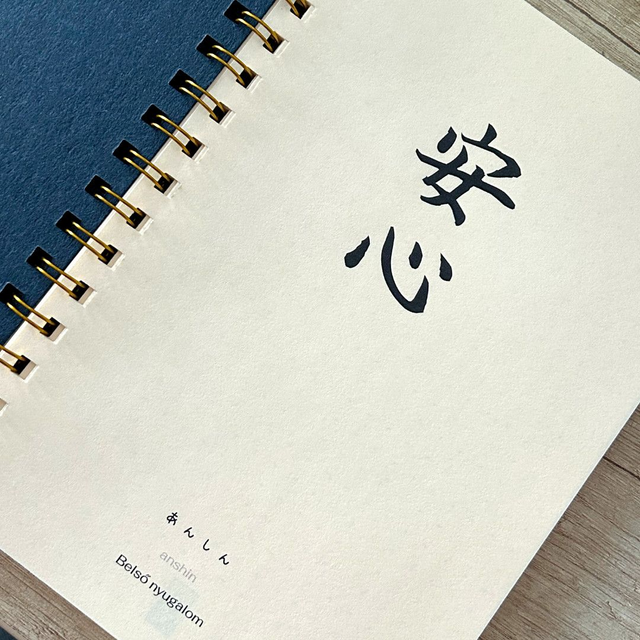 安
心
あんしん
anshin
Belső nyugalom